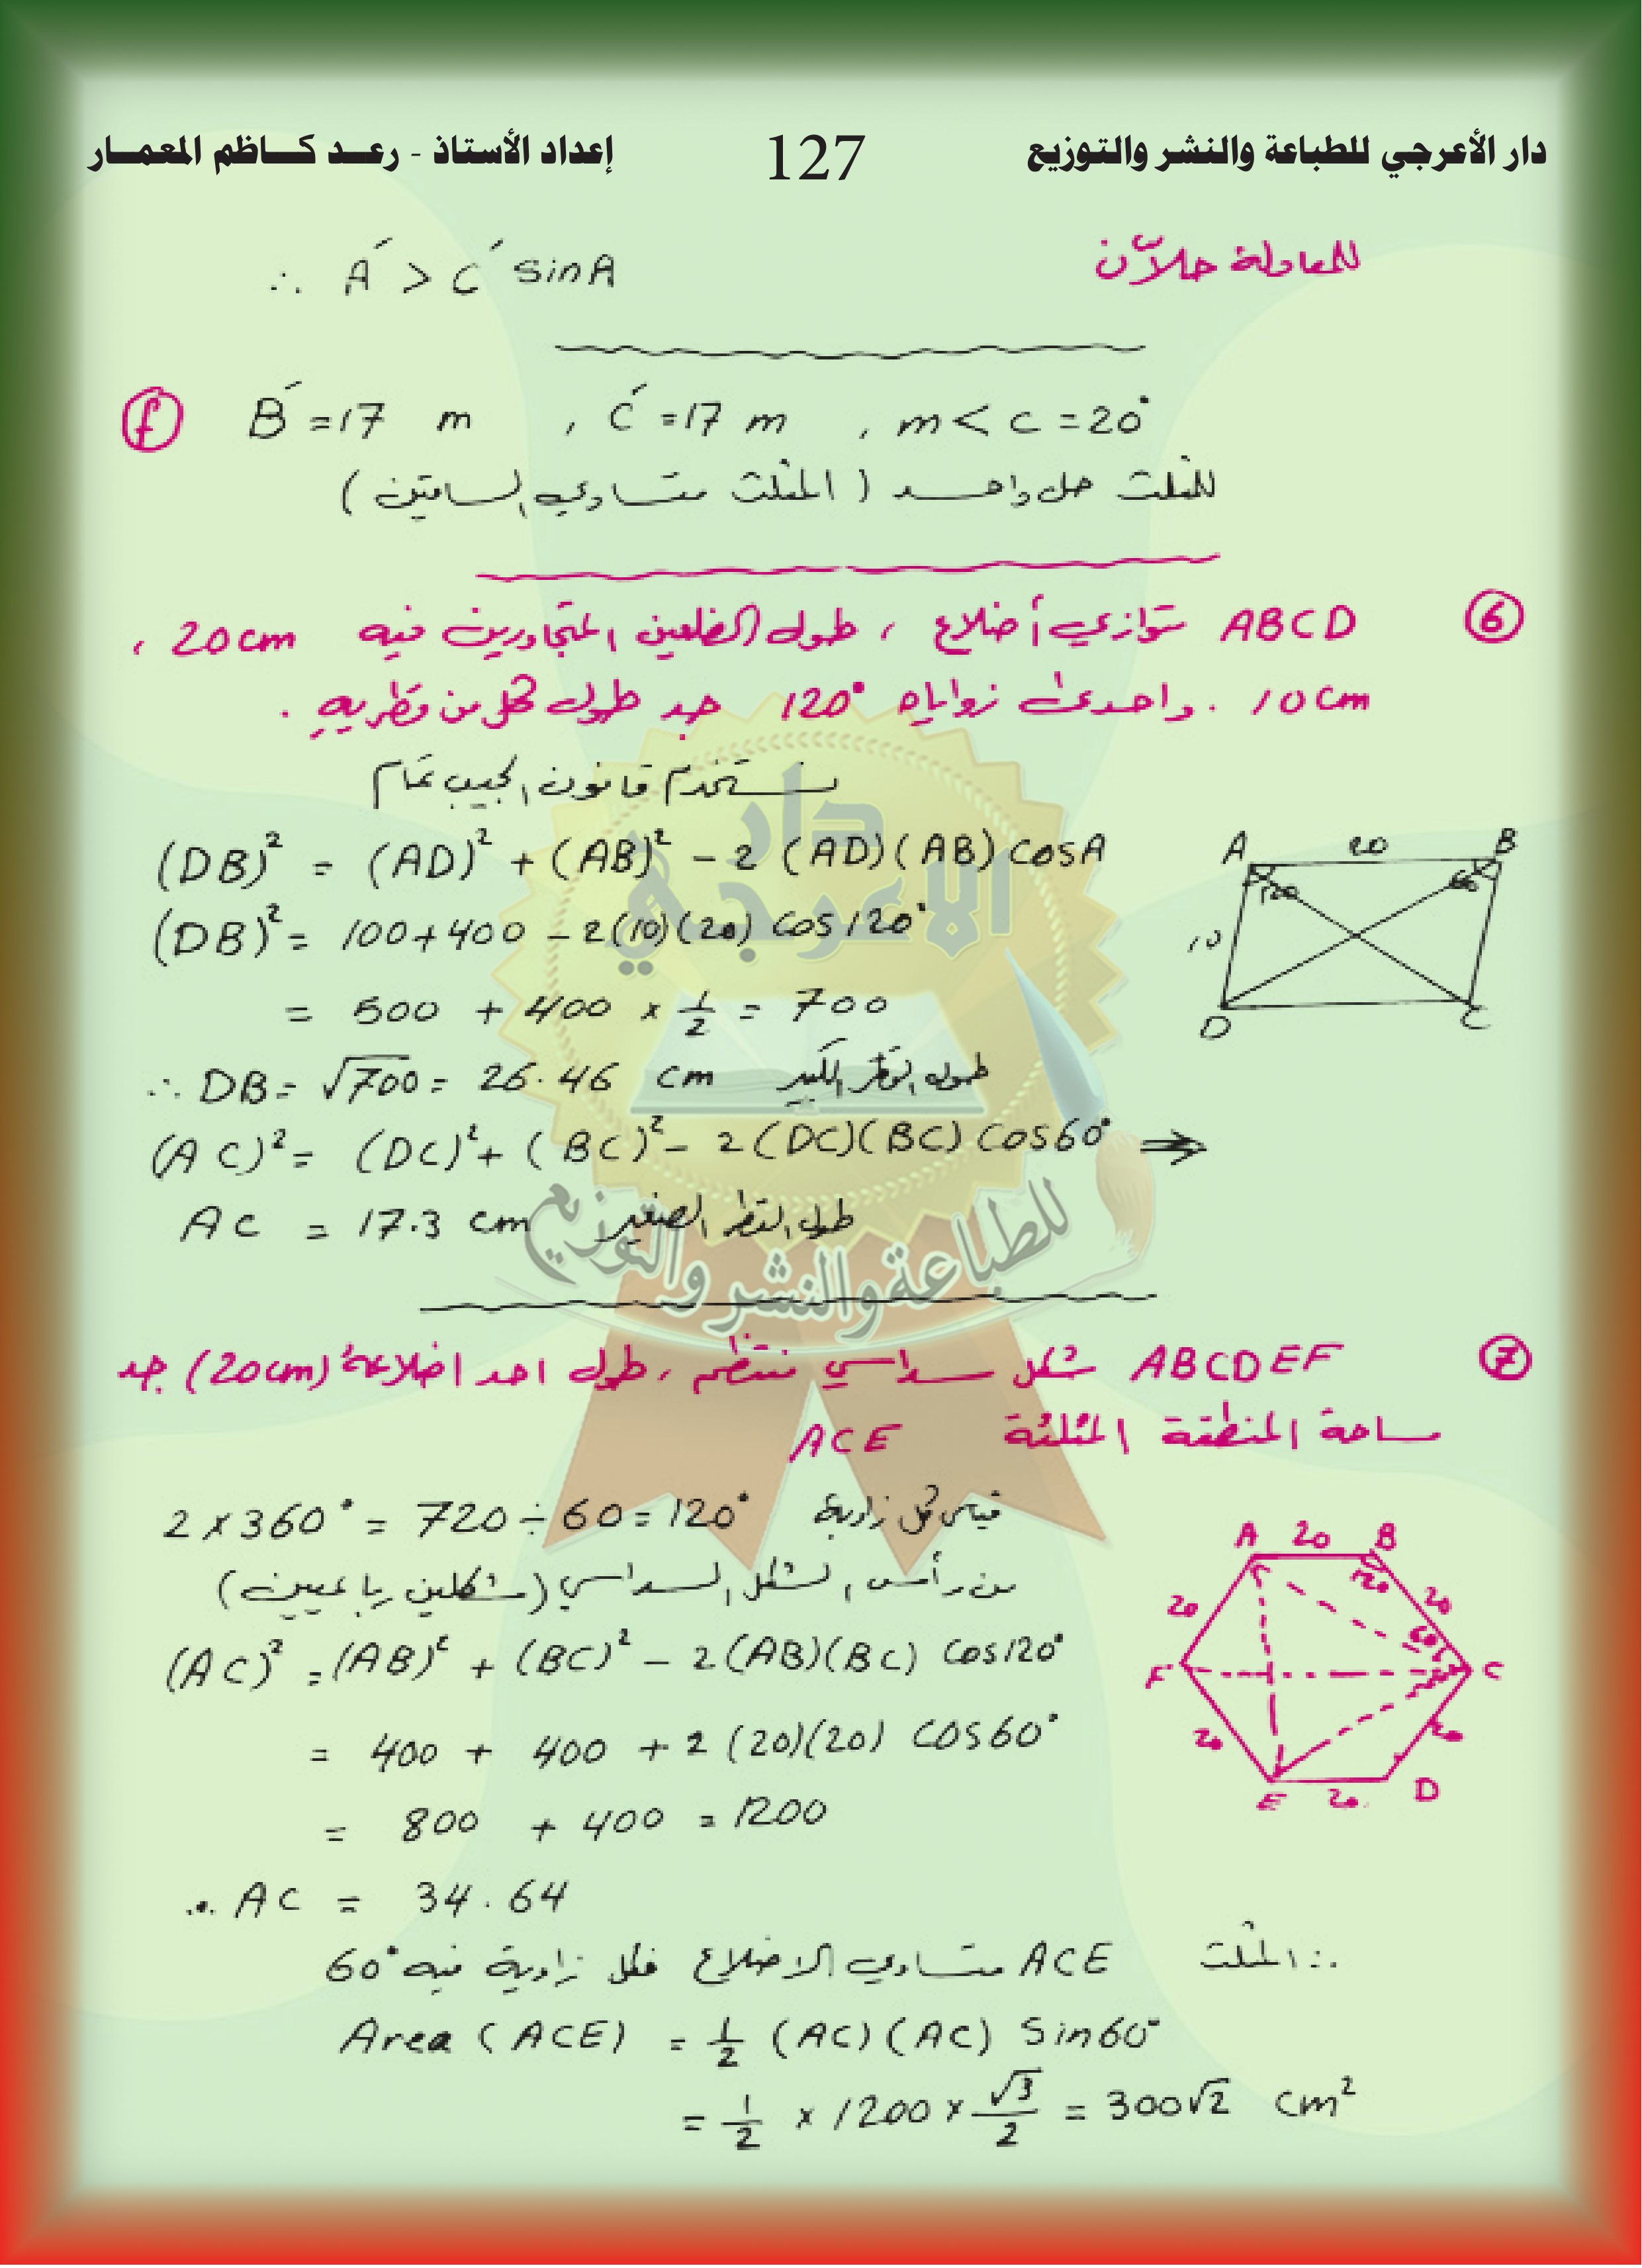 دار الأعرجي للطباعة والنشر والتوزيع 127 إعداد الأستاذ - رعـد كـاظم المعمـار
∴ A′ > C′ sinA للمعادلة حلاّن
ⓕ B′ = 17 m , C′ = 17 m , m < c = 20°
للمثلث حل واحد ( المثلث متساوي الساقين )
⑥ ABCD متوازي أضلاع ، طول الضلعين المتجاورين فيه 20cm ،
10cm . واحدى زواياه 120° جد طول كل من قطريه .
نستخدم قانون الجيب تمام
(DB)² = (AD)² + (AB)² - 2 (AD)(AB) cosA
(DB)² = 100 + 400 - 2(10)(20) cos120°
= 500 + 400 × 1/2 = 700
∴ DB = √700 = 26.46 cm طول القطر الكبير
(AC)² = (DC)² + (BC)² - 2(DC)(BC) cos60° ⇒
AC = 17.3 cm طول القطر الصغير
A 20 B
120 60
10
D C
دار
الأعرجي
للطباعة والنشر والتوزيع
⑦ ABCDEF شكل سداسي منتظم ، طول احد اضلاعه (20cm) جد
مساحة المنطقة المثلثة ACE
2 × 360° = 720 ÷ 60 = 120° قياس كل زاوية
من رأس الشكل السداسي (شكلين رباعيين)
(AC)² = (AB)² + (BC)² - 2(AB)(BC) cos120°
= 400 + 400 + 2 (20)(20) cos60°
= 800 + 400 = 1200
∴ AC = 34.64
A 20 B
120
20 20
60
F C
20 20
E 20 D
∴ المثلث ACE متساوي الاضلاع فكل زاوية فيه 60°
Area (ACE) = 1/2 (AC)(AC) Sin60°
= 1/2 × 1200 × √3/2 = 300√2 cm²